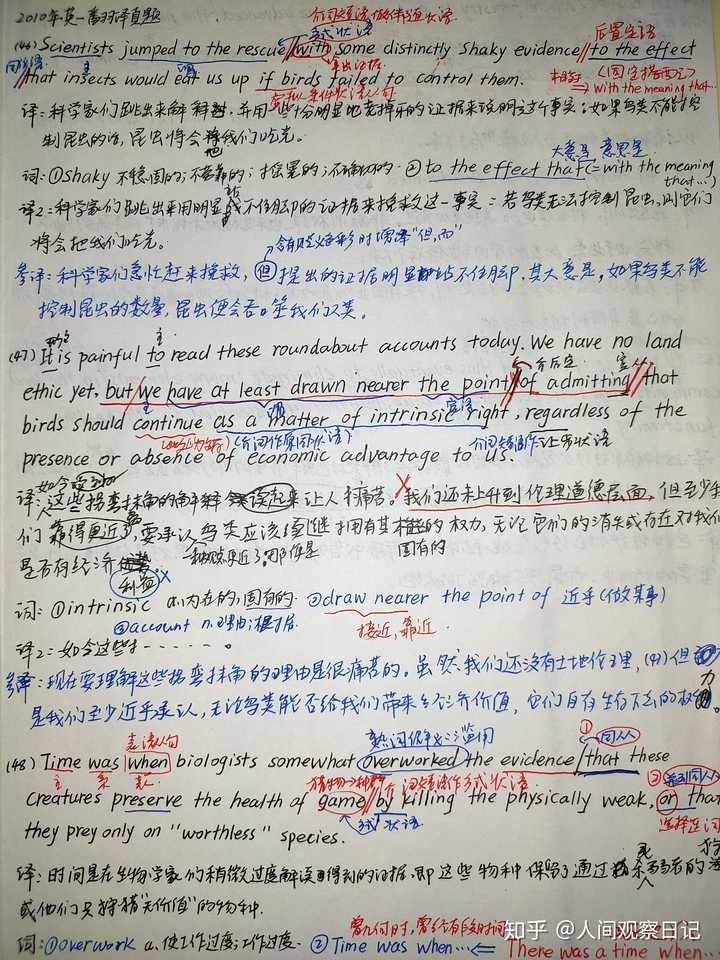 2010年英一翻译真题
介词短语做伴随状语
方式状语
后置定语
(46) Scientists jumped to the rescue with some distinctly shaky evidence to the effect
同位语 主 谓 拿出证据 相当于 (固定搭配)
that insects would eat us up if birds failed to control them.
with the meaning that...
虚拟条件状语从句
制昆虫的话, 昆虫将会把我们吃光。
词: ①shaky 不稳固的; 不可靠的; 摇晃的; 不确切的. ②to the effect that (= with the meaning that...)
大意是 意思是
译2: 科学家们跳出来用明显站不住脚的证据来挽救这一事实: 若鸟类无法控制昆虫, 则它们
将会把我们吃光。
含有转义色彩时需译"但, 而"
参译: 科学家们急忙赶来挽救, 但提出的证据明显站不住脚, 其大意是, 如果鸟类不能
控制昆虫的数量, 昆虫便会吞噬我们人类。
主
(47) It is painful to read these roundabout accounts today. We have no land
介后定 宾从
ethic yet, but we have at least drawn nearer the point of admitting that
主 谓 宾语
birds should continue as a matter of intrinsic right, regardless of the
(介词作原因状语) 介词短语作让步状语
presence or absence of economic advantage to us.
译: 这些拐弯抹角的解释读起来让人痛苦。我们还未上升到伦理道德层面, 但至少我
们靠得更近了, 要承认鸟类应该继续拥有其固有的权力, 无论它们的消失或存在对我们
是否有经济利益
词: ①intrinsic a.内在的, 固有的. ②draw nearer the point of 近乎(做某事)
③account n.理由; 根据. 接近, 靠近
译2: 如今这些......。
参译: 现在要理解这些拐弯抹角的理由是很痛苦的。虽然我们还没有土地伦理, (47)但
是我们至少近乎承认, 无论鸟类能否给我们带来经济价值, 它们自有生存下去的权力。
表语从句 熟词僻义: 滥用 ① 同从
(48) Time was when biologists somewhat overworked the evidence that these
主 系 表 猎物→种群 介词短语作方式状语 ②
creatures preserve the health of game by killing the physically weak, or that
方式状语 选择连词
they prey only on "worthless" species.
译: 时间是在生物学家们稍微过度解读得到的证据, 即这些物种保留了通过杀死弱者的
或他们只狩猎"无价值"的物种.
曾几何时, 曾经有段时间
词: ①overwork a. 使工作过度; 工作过度. ②Time was when... ⇐ There was a time when...
知乎 @人间观察日记